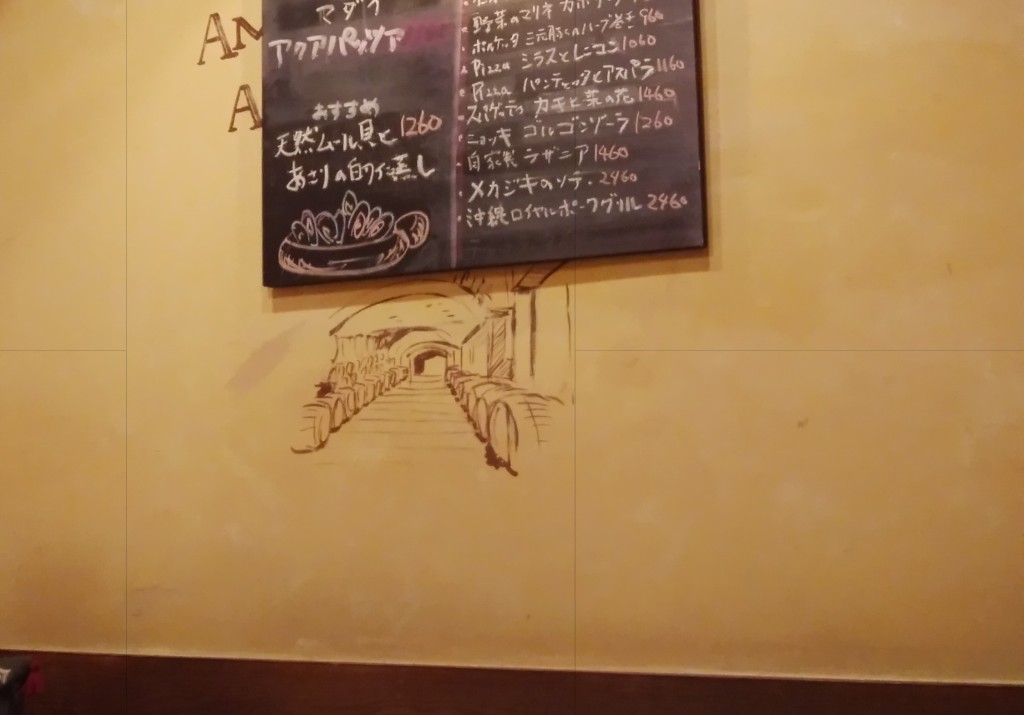 AM
A
マダイ
アクアパッツァ
おすすめ
天然ムール貝と 1260
あさりの白ワイン蒸し
野菜のマリネ カポナータ
ポルケッタ 三元豚のハーブ巻き 960
Pizza シラスとレンコン 1060
Pizza パンチェッタとアスパラ 1160
スパゲッティ カキと菜の花 1460
・ニョッキ ゴルゴンゾーラ 1260
・自家製 ラザニア 1460
・メカジキのソテー 2460
・沖縄ロイヤルポークグリル 2460